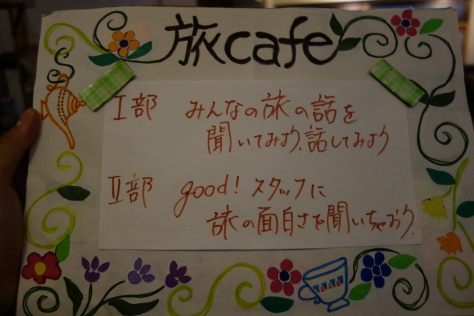 旅cafe
I部 みんなの旅の話を
聞いてみよう、話してみよう
II部 good! スタッフに
旅の面白さを聞いちゃおう。